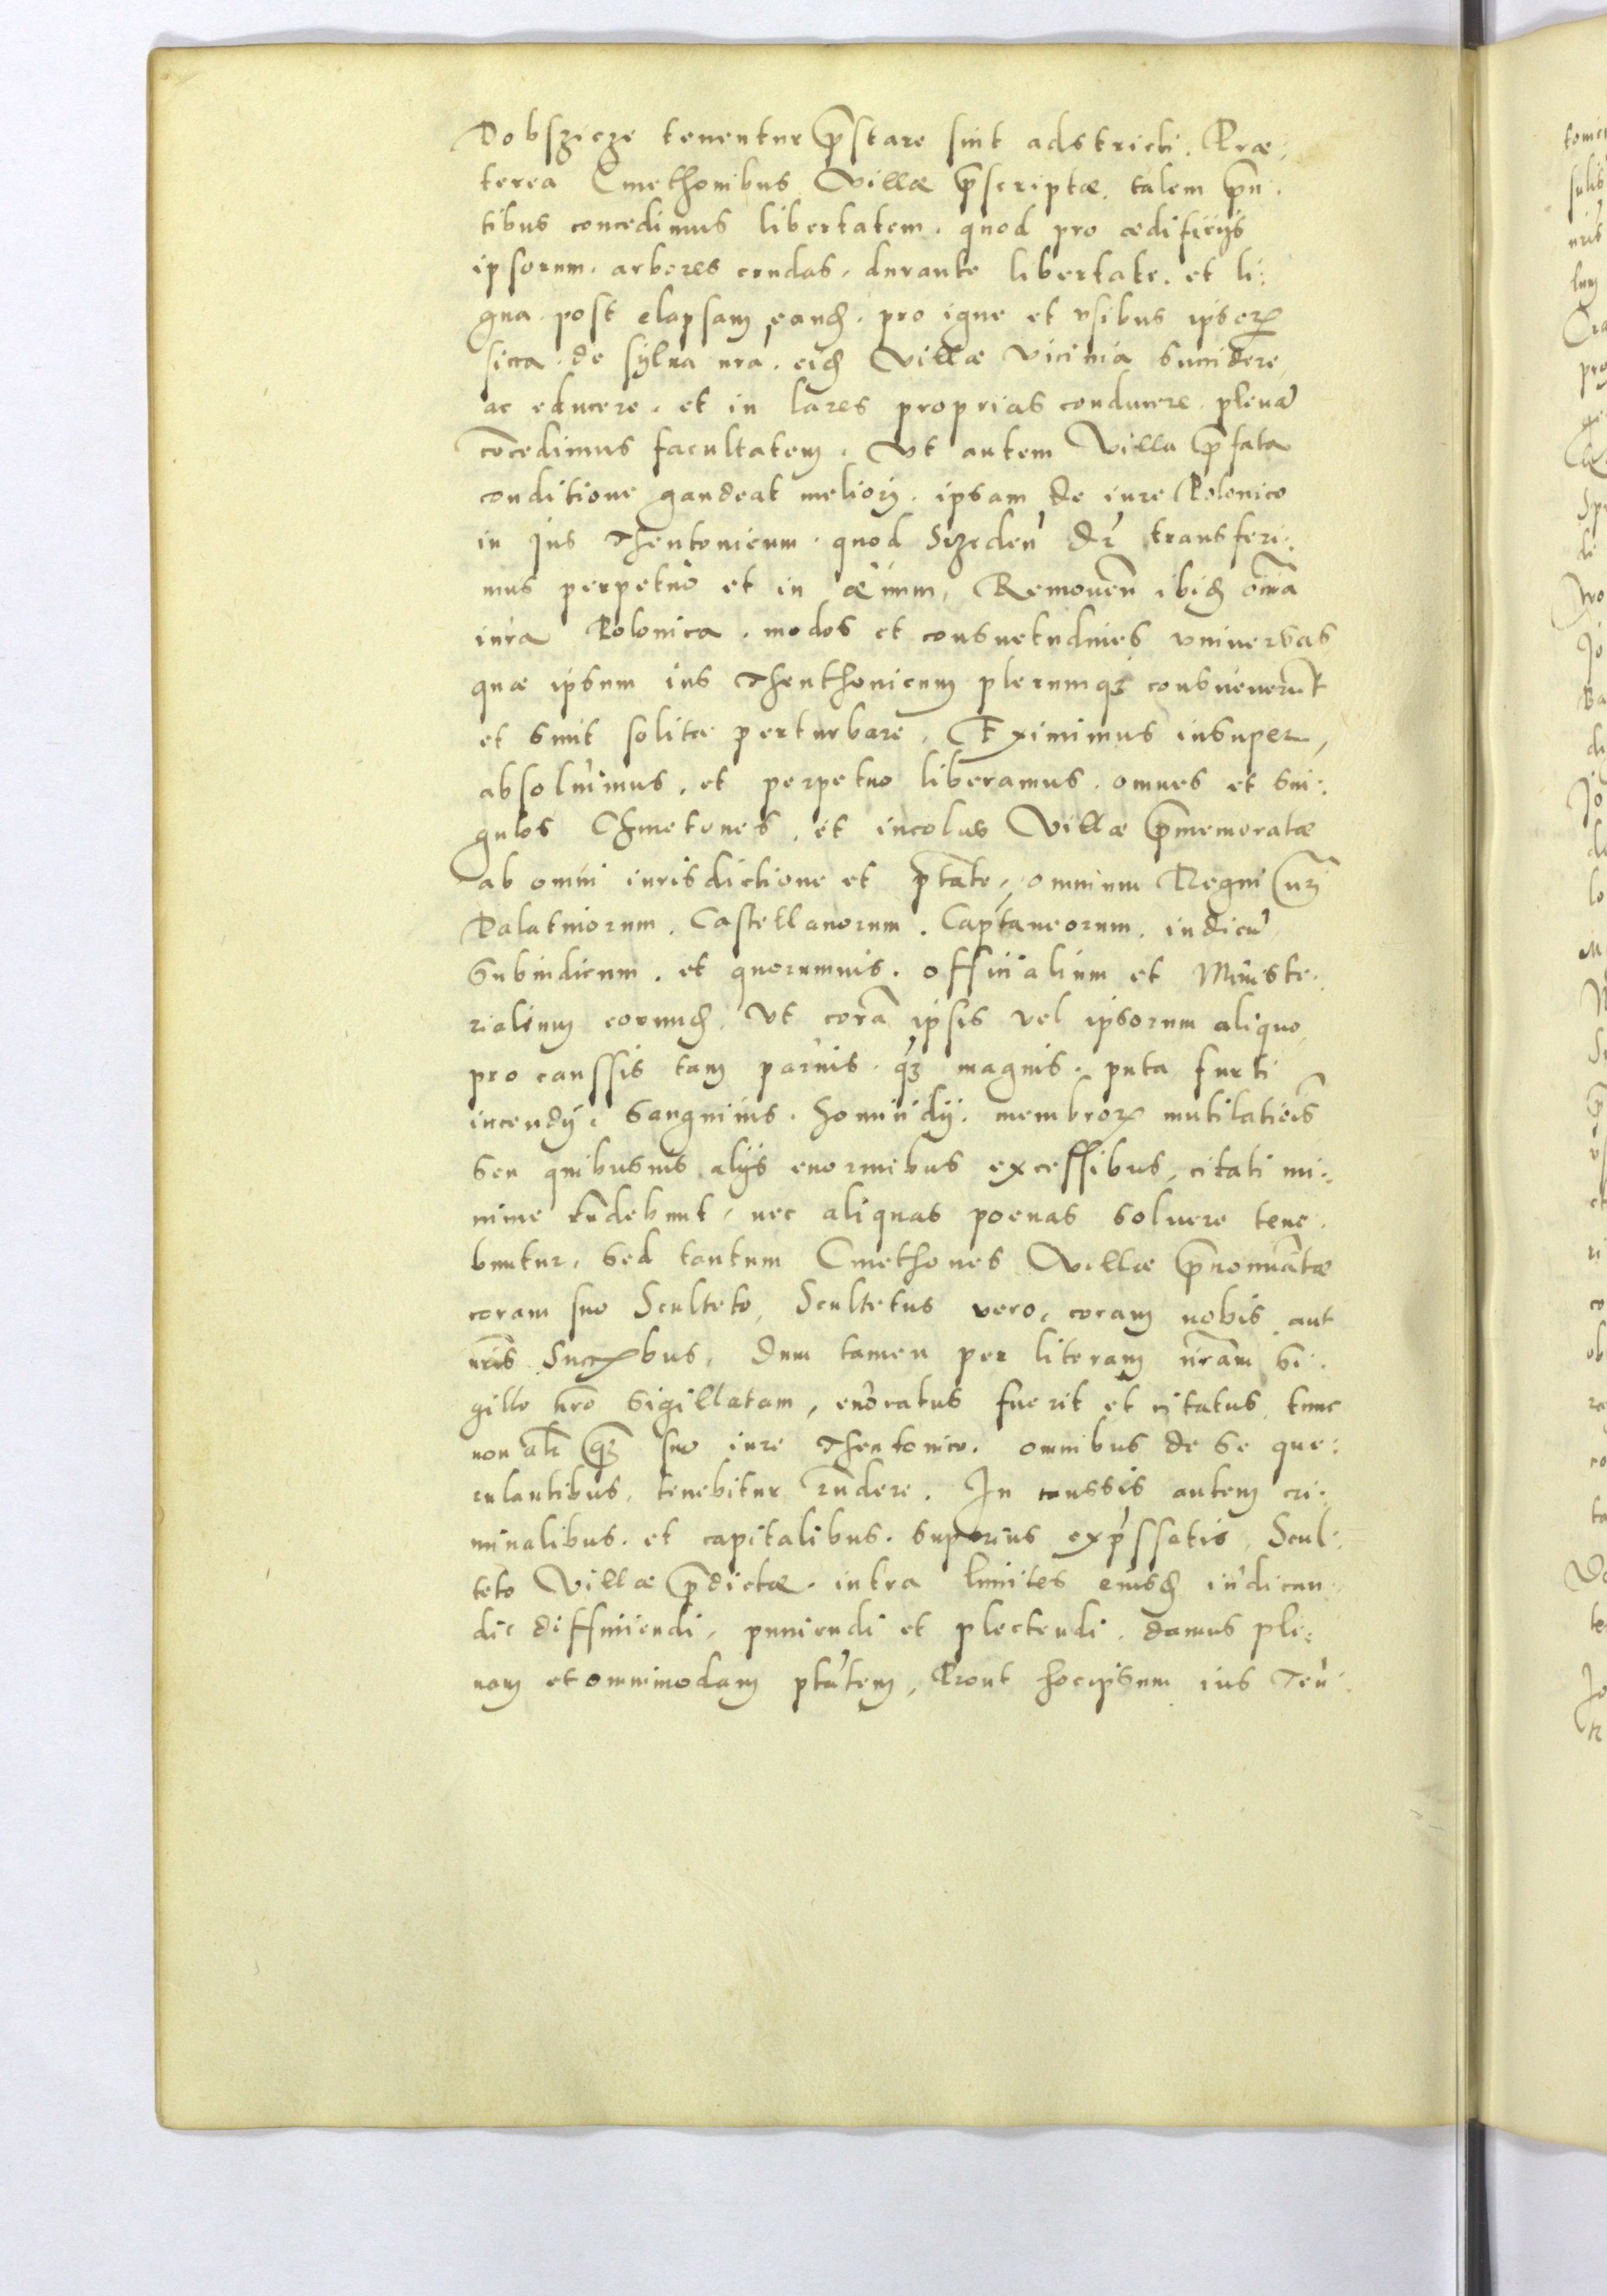 Dobszicze tenentur p̄stare sint adstricti. Præ:
terea Cmethonibus Villæ p̄scriptæ. talem p̄n:
tibus concedimus libertatem. quod pro ædificijs
ipsorum. arbores crudas. durante libertate. et li:
gna. post elapsam eandē. pro igne et vsibus ipsoꝝ
sicca. de sylua nra. eidē Villæ vicinia succidere
ac educere. et in lares proprias conducere. plenā
cōcedimus facultatem. Vt autem Villa p̄fata
conditione gaudeat meliori. ipsam de iure Polonico
in Jus Theutonicum. quod Srzeden̄ dr̄ transferi:
mus perpetuo et in æuum, Remouen̄ ibidē om̄ia
iura Polonica. modos et consuetudines vniuersas
quæ ipsum ius Theuthonicum plerumqꝫ consueuerūt
et sunt solitæ perturbare. Eximimus insuper,
absoluimus, et perpetuo liberamus. omnes et sin:
gulos Chmetones. et incolas Villæ p̄memoratæ
ab omni iurisdictione et p̄tate, omnium Regni nr̄i
Palatinorum. Castellanorum. Capitaneorum. iudicū
Subiudicum. et quorumuis. officialium et Ministe:
rialium eorundē. Vt corā ipsis vel ipsorum aliquo
pro caussis tam paruis. qꝫ magnis. puta furti
incendij. Sanguinis. homicidij. membroꝝ mutilatiōis
Seu quibusuis alijs enormibus excessibus, citati mi:
nime rn̄debunt, nec aliquas poenas soluere tene:
buntur. Sed tantum Cmethones Villæ p̄nominātæ
coram suo Sculteto, Scultetus vero, coram nobis aut
nr̄is Succꝝbus. dum tamen per literam nr̄am si:
gillo nr̄o sigillatam, euocatus fuerit et citatus, tunc
non alr̄ qꝫ suo iure Theutonico. omnibus de se que:
rulantibus, tenebitur rn̄dere. In caussis autem cri:
minalibus. et capitalibus. superius exp̄ssatis, Scul:
teto Villæ p̄dictæ. intra limites eiusdē iudican:
di, diffiniendi, puniendi et plectendi. damus ple:
nam et omnimodam p̄tatem, Prout hoc ipsum ius Teu: